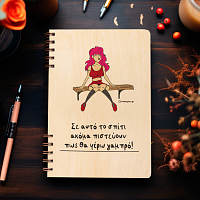 Σε αυτό το σπίτι
ακόμα πιστεύουν
πως θα φέρω γαμπρό!